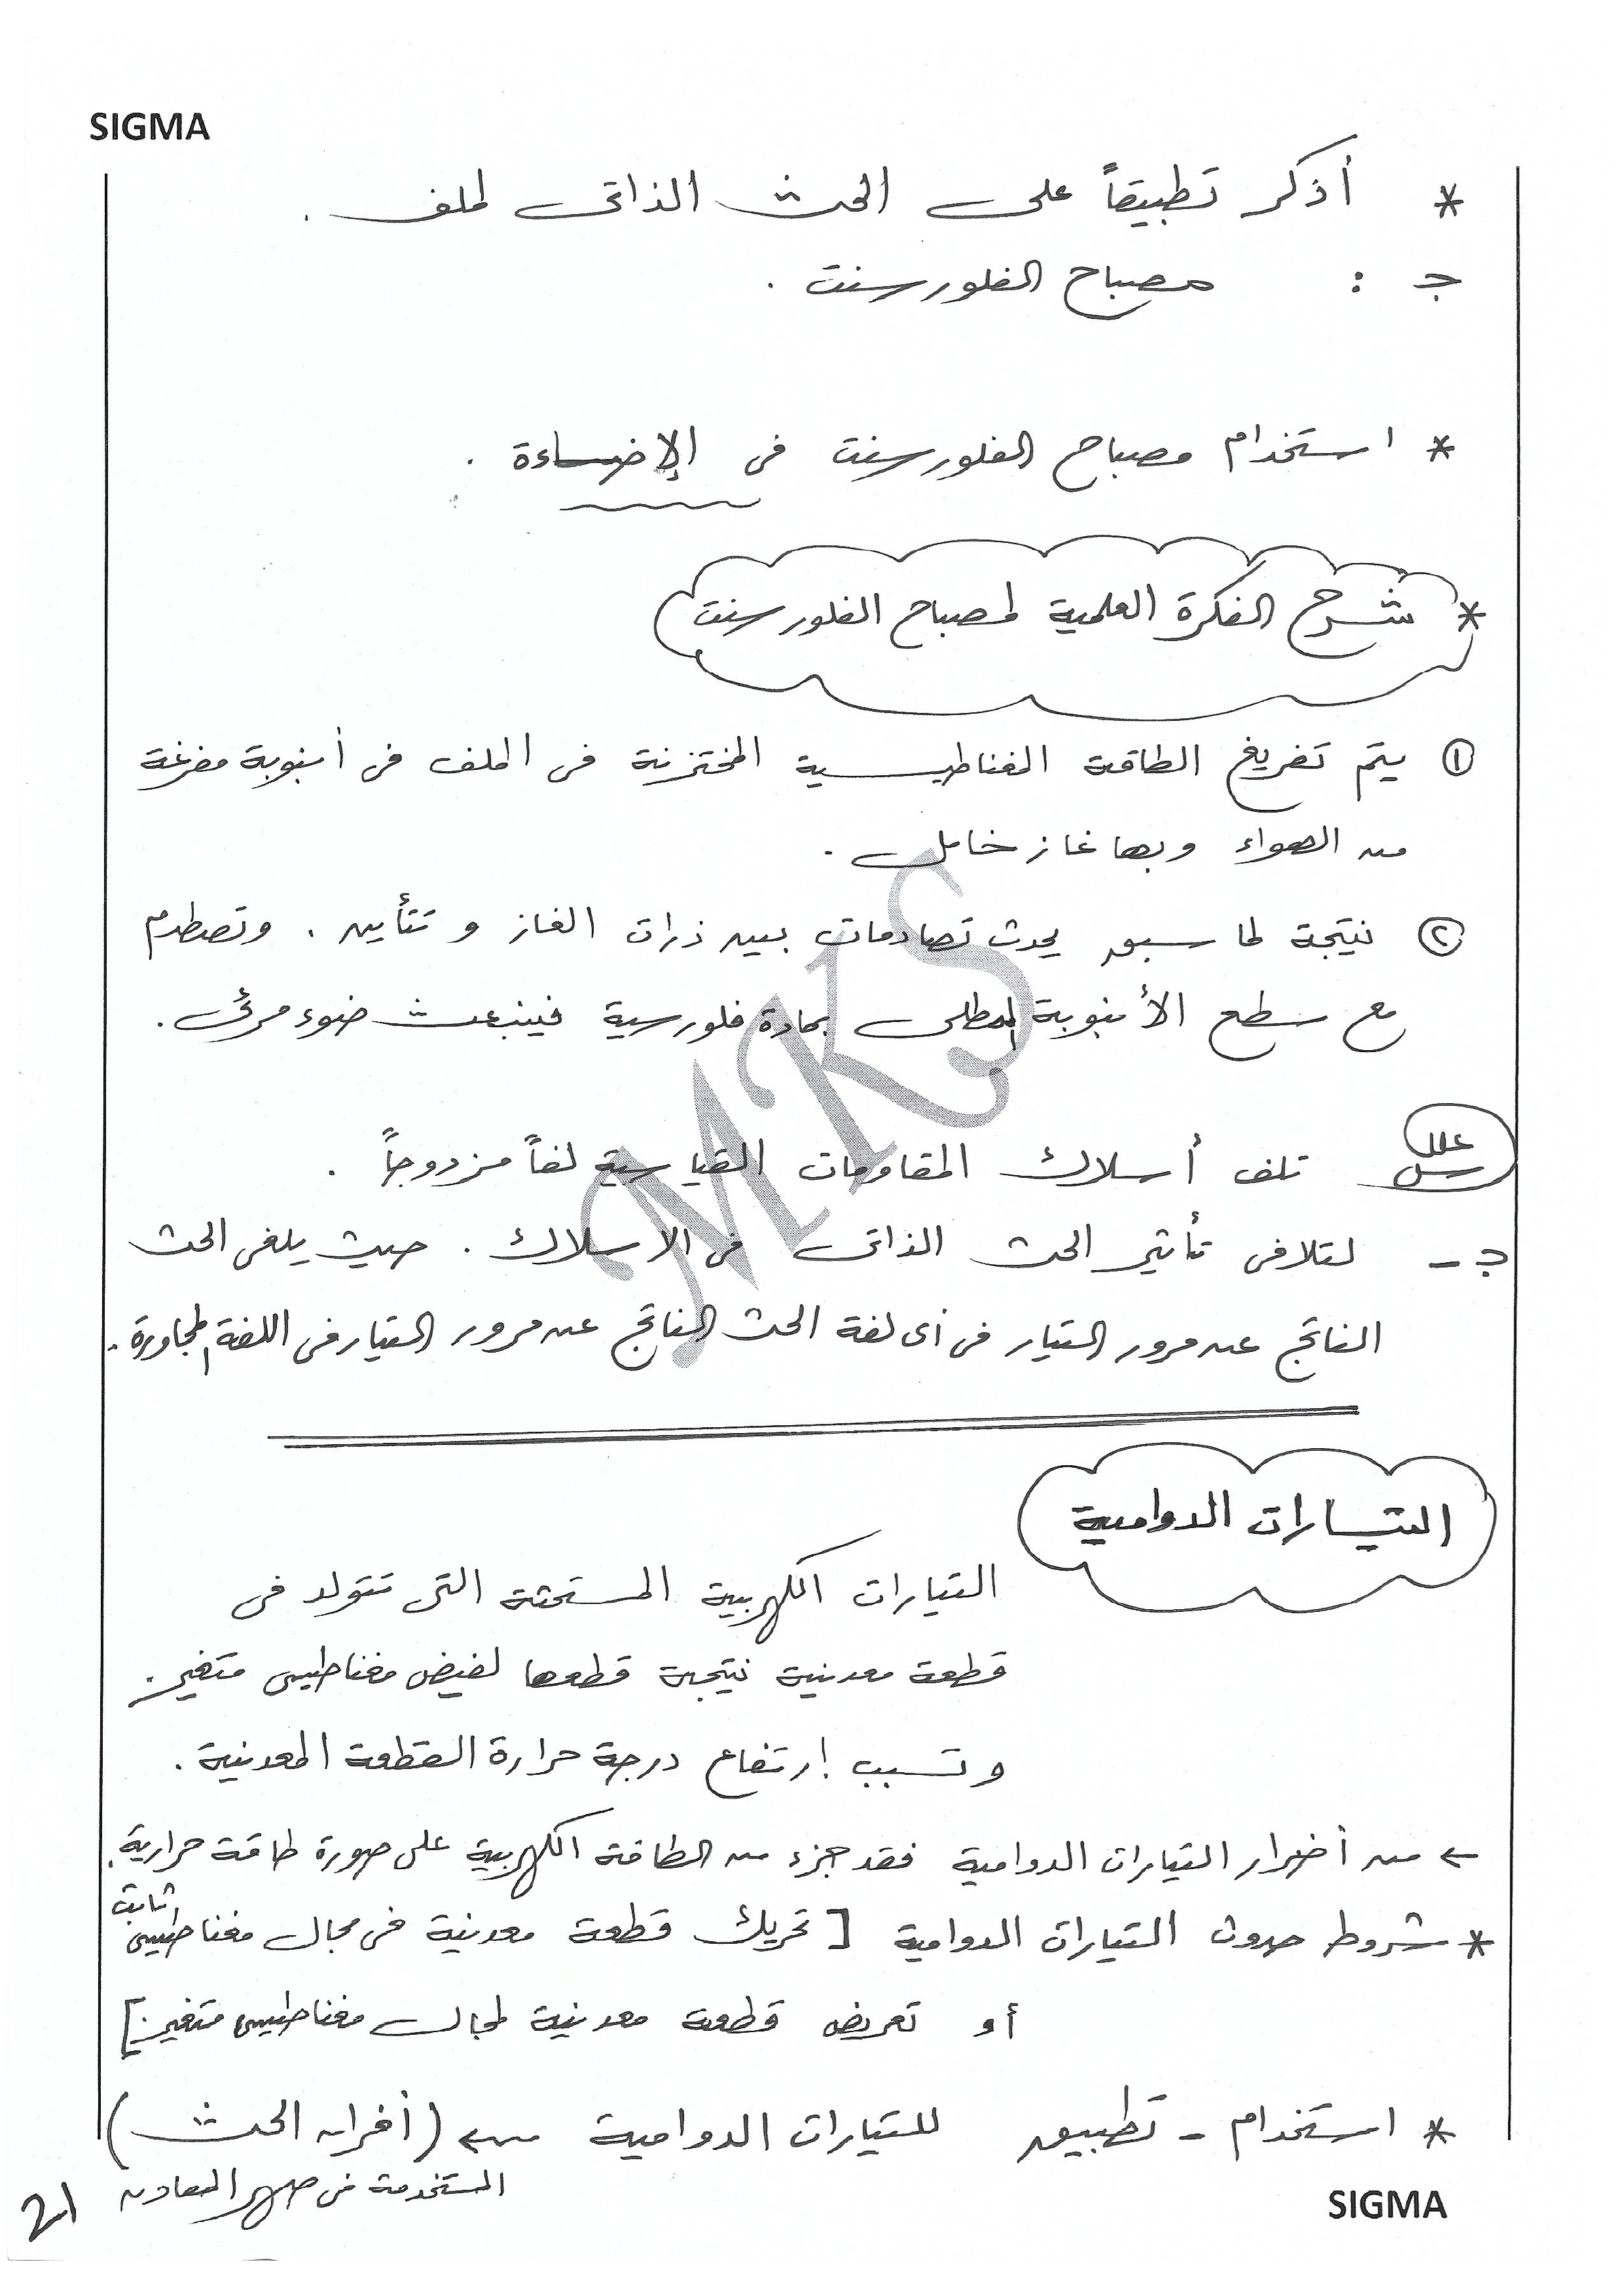 SIGMA
* أذكر تطبيقاً على الحث الذاتى لملف .
جـ : مصباح الفلورسنت .
* استخدام مصباح الفلورسنت فى الإضاءة .
* شرح الفكرة العلمية لمصباح الفلورسنت
١ يتم تفريغ الطاقة المغناطيسية المختزنة فى الملف فى أنبوبة مفرغة
من الهواء وبها غاز خامل .
٢ نتيجة لما سبق يحدث تصادمات بين ذرات الغاز و تتأين . وتصطدم
مع سطح الأنبوبة المطلى بمادة فلورسية فينبعث ضوء مرئى .
علل
س تلف أسلاك المقاومات القياسية لفاً مزدوجاً .
جـ - لتلافى تأثير الحث الذاتى فى الاسلاك . حيث يلغى الحث
الناتج عن مرور التيار فى أى لفة الحث الناتج عن مرور التيار فى اللفة المجاورة .
التيارات الدوامية
التيارات الكهربية المستحثة التى تتولد فى
قطعة معدنية نتيجة قطعها لفيض مغناطيسى متغير .
و تسبب إرتفاع درجة حرارة القطعة المعدنية .
← من أضرار التيارات الدوامية فقد جزء من الطاقة الكهربية على صورة طاقة حرارية .
* شروط حدوث التيارات الدوامية [ تحريك قطعة معدنية فى مجال مغناطيسى ثابت
أو تعريض قطعة معدنية لمجال مغناطيسى متغير ]
* استخدام - تطبيق للتيارات الدوامية ← ( أفران الحث )
المستخدمة فى صهر المعادن
21
SIGMA
MKS